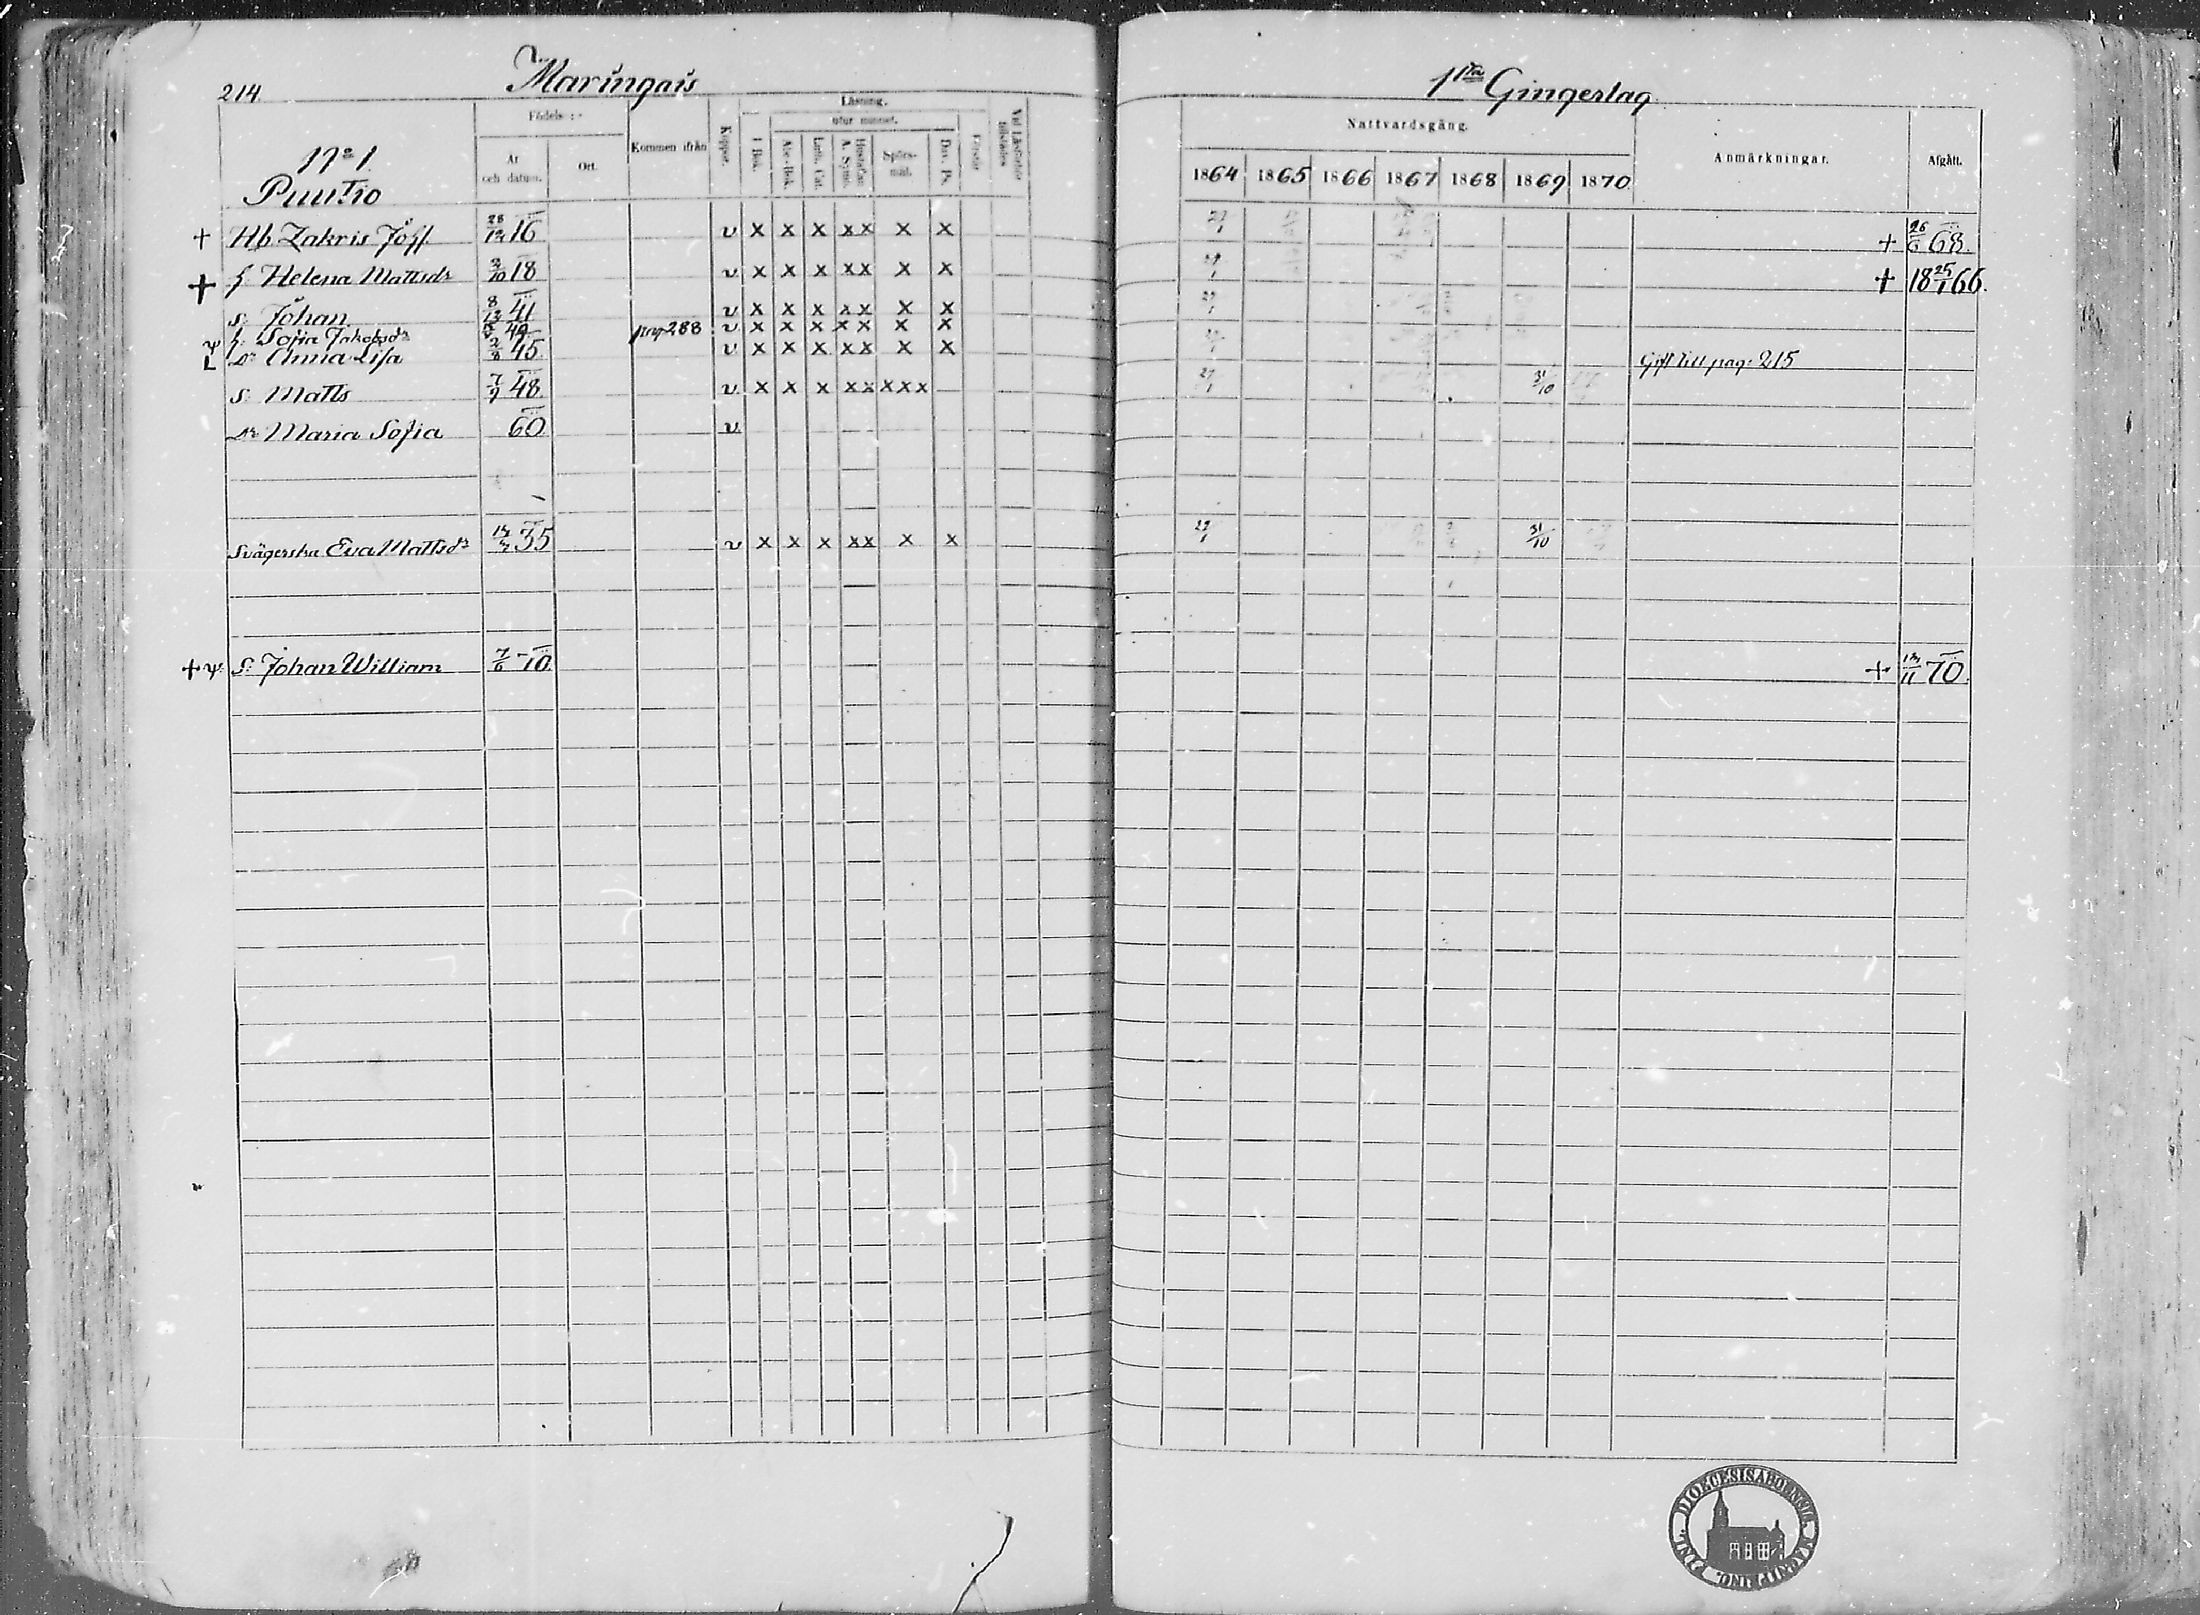 214
Maringais
1sta Gingerlag
Födels:
Kommen ifrån
Koppor.
Läsning.
utur minnet.
I Bok.
Abc-Bok.
Luth. Cat.
Hustaflan
A. Symb.
Spörs-
mål.
Dav. Ps.
Förstår
År
och datum.
Ort.
Nattvardsgång.
1864 1865 1866 1867 1868 1869 1870
Anmärkningar.
Afgått.
No 1
Puutio
+ Hb Zakris Jöss. 26/12 16 v x x x xx x x 27/1 + 26/6 68.
+ h Helena Mattsdr 2/10 18 v x x x xx x x 27/1 + 18 25/1 66.
s: Johan 8/12 41 v x x x xx x x 27/1
h: Sofia Jakobsdr 49 pag 288 v x x x xx x x
L Dr Anna Lisa 2/8 45 v x x x xx x x Gift till pag: 215
s: Matts 7/9 48. v x x x xx xxx 27/1 31/10
Dr Maria Sofia 60 v
Svägerska Eva Mattsdr 35 v x x x xx x x 27/1 31/10
+ S: Johan William 7/6 70 + 70.
DIOECESIS ABOENSIS